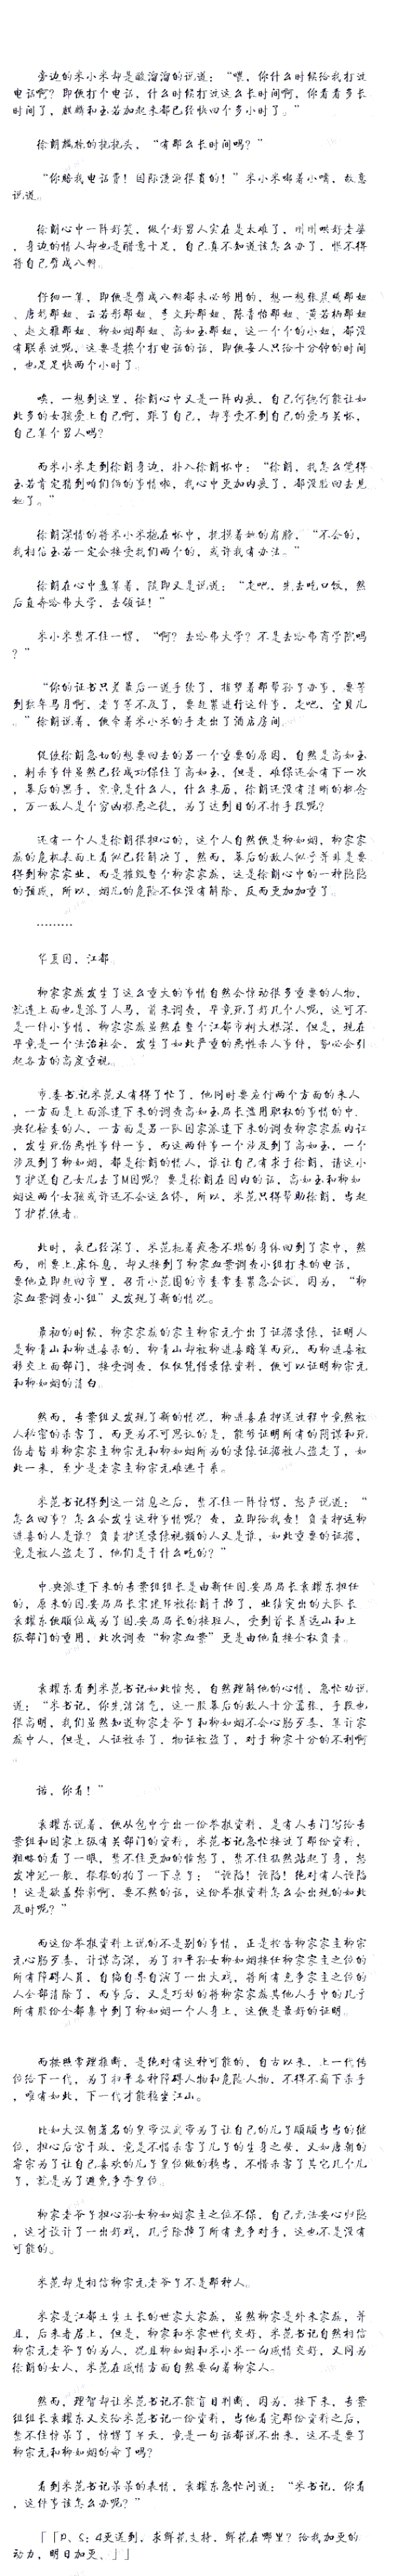 旁边的米小米却是酸溜溜的说道：“喂，你什么时候给我打过
电话啊？即便打个电话，什么时候打过这么长时间啊，你看看多长
时间了，麒麟和玉若加起来都已经快四个多小时了。”
徐朗尴尬的挠挠头，“有那么长时间吗？”
“你赔我电话费！国际漫游很贵的！”米小米嘟着小嘴，故意
说道。
徐朗心中一阵好笑，做个好男人实在是太难了，刚刚哄好老婆
，身边的情人却也是醋意十足，自己真不知道该怎么办了，恨不得
将自己劈成八瓣。
仔细一算，即便是劈成八瓣都未必够用的，想一想张晨曦那妞
、唐彤那妞、云若彤那妞、李文玲那妞、陈青怡那妞、黄若栩那妞
、赵文雅那妞、柳如烟那妞、高如玉那妞，这一个个的小妞，都没
有联系过呢，这要是挨个打电话的话，即便每人只给十分钟的时间
，也足足快两个小时了。
唉，一想到这里，徐朗心中又是一阵内疚，自己何德何能让如
此多的女孩爱上自己啊，跟了自己，却享受不到自己的爱与关怀，
自己算个男人吗？
而米小米走到徐朗身边，扑入徐朗怀中：“徐朗，我怎么觉得
玉若肯定猜到咱们俩的事情啦，我心中更加内疚了，都没脸回去见
她了。”
徐朗深情的将米小米抱在怀中，抚摸着她的肩膀，“不会的，
我相信玉若一定会接受我们两个的，或许我有办法。”
徐朗在心中盘算着，随即又是说道：“走吧，先去吃口饭，然
后直奔哈佛大学，去领证！”
米小米禁不住一愣，“啊？去哈佛大学？不是去哈佛商学院吗
？”
“你的证书只差最后一道手续了，指望着那帮孙子办事，要等
到猴年马月啊，老子等不及了，要赶紧进行这件事，走吧，宝贝儿
。”徐朗说着，便牵着米小米的手走出了酒店房间。
促使徐朗急切的想要回去的另一个重要的原因，自然是高如玉
，刺杀事件虽然已经成功保住了高如玉，但是，难保还会有下一次
，幕后的黑手，究竟是什么人，什么来历，徐朗还没有清晰的概念
，万一敌人是个穷凶极恶之徒，为了达到目的不择手段呢？
还有一个人是徐朗很担心的，这个人自然便是柳如烟，柳家家
族的危机表面上看似已经解决了，然而，幕后的敌人似乎并非是要
得到柳家家业，而是摧毁整个柳家家族，这是徐朗心中的一种隐隐
的预感，所以，烟儿的危险不仅没有解除，反而更加加重了。
………
华夏国，江都。
柳家家族发生了这么重大的事情自然会惊动很多重要的人物，
就连上面也是派了人马，前来调查，毕竟死了好几个人呢，这可不
是一件小事情，柳家家族虽然在整个江都市树大根深，但是，现在
毕竟是一个法治社会，发生了如此严重的恶性杀人事件，势必会引
起各方的高度重视。
市.委书.记米范又有得了忙了，他同时要应付两个方面的来人
，一方面是上面派遣下来的调查高如玉局长滥用职权的事情的中.
央纪检委的人，一方面是另一队国家派遣下来的调查柳家家族内讧
，发生死伤恶性事件一事，而这两件事一个涉及到了高如玉，一个
涉及到了柳如烟，都是徐朗的情人，谁让自己有求于徐朗，请这小
子护送自己女儿去了M国呢？要是徐朗在国内的话，高如玉和柳如
烟这两个女孩或许还不会这么惨，所以，米范只得帮助徐朗，当起
了护花使者。
此时，夜已经深了，米范拖着疲惫不堪的身体回到了家中，然
而，刚要上床休息，却又接到了柳家血案调查小组打来的电话，
要他立即赶回市里，召开小范围的市委常委紧急会议，因为，“柳
家血案调查小组”又发现了新的情况。
最初的时候，柳家家族的家主柳宗元拿出了证据录像，证明人
是柳青山和柳进喜杀的，柳青山却被柳进喜暗算而死，而柳进喜被
移交上面部门，接受调查，仅仅凭借录像资料，便可以证明柳宗元
和柳如烟的清白。
然而，专案组又发现了新的情况，柳进喜在押送过程中竟然被
人秘密的杀害了，而更为不可思议的是，能够证明所有的阴谋和死
伤者皆非柳家家主柳宗元和柳如烟所为的录像证据被人盗走了，如
此一来，至少是老家主柳宗元难逃干系。
米范书记得到这一消息之后，禁不住一阵惊愕，怒声说道：“
怎么回事？怎么会发生这种事情呢？查，立即给我查！负责押送柳
进喜的人是谁？负责护送录像视频的人又是谁，如此重要的证据，
竟是被人盗走了，他们是干什么吃的？”
中.央派遣下来的专案组组长是由新任国.安局局长袁耀东担任
的，原来的国.安局局长宋建邦被徐朗干掉了，业绩突出的大队长
袁耀东便顺位成为了国.安局局长的接班人，受到首长肖远山和上
级部门的重用，此次调查“柳家血案”更是由他直接全权负责。
袁耀东看到米范书记如此愤怒，自然理解他的心情，急忙劝说
道：“米书记，你先消消气，这一股幕后的敌人十分嚣张，手段也
很高明，我们虽然知道柳家老爷子和柳如烟不会心肠歹毒，算计家
族中人，但是，人证被杀了，物证被盗了，对于柳家十分的不利啊
。
诺，你看！”
袁耀东说着，便从包中拿出一份举报资料，是有人专门写给专
案组和国家上级有关部门的资料，米范书记急忙接过了那份资料，
粗略的看了一眼，禁不住更加的愤怒了，禁不住猛然站起了身，怒
发冲冠一般，狠狠的拍了一下桌子：“诬陷！诬陷！绝对有人诬陷
！这是欲盖弥彰啊，要不然的话，这份举报资料怎么会出现的如此
及时呢？”
而这份举报资料上说的不是别的事情，正是控告柳家家主柳宗
元心肠歹毒，计谋高深，为了扫平孙女柳如烟接任柳家家主之位的
所有障碍人员，自编自导自演了一出大戏，将所有竞争家主之位的
人全部清除了，而事后，又是巧妙的将柳家家族其他人手中的几乎
所有股份全部集中到了柳如烟一个人身上，这便是最好的证明。
而按照常理推断，是绝对有这种可能的，自古以来，上一代传
位给下一代，为了扫平各种障碍人物和危险人物，不得不痛下杀手
，唯有如此，下一代才能稳坐江山。
比如大汉朝著名的皇帝汉武帝为了让自己的儿子顺顺当当的继
位，担心后宫干政，竟是不惜杀害了儿子的生身之母，又如唐朝的
睿宗为了让自己喜欢的儿子皇位做的稳当，不惜杀害了其它几个儿
子，就是为了避免争夺皇位。
柳家老爷子担心孙女柳如烟家主之位不保，自己无法安心归隐
，这才设计了一出好戏，几乎除掉了所有竞争对手，这也不是没有
可能的。
米范却是相信柳宗元老爷子不是那种人。
米家是江都土生土长的世家大家族，虽然柳家是外来家族，并
且，后来者居上，但是，柳家和米家世代交好，米范书记自然相信
柳宗元老爷子的为人，况且柳如烟和米小米一向感情交好，又同为
徐朗的女人，米范在感情方面自然要向着柳家人。
然而，理智却让米范书记不能盲目判断，因为，接下来，专案
组组长袁耀东又交给米范书记一份资料，当他看完那份资料之后，
禁不住惊呆了，惊愕了半天，竟是一句话都说不出来，这不是要了
柳宗元和柳如烟的命了吗？
看到米范书记呆呆的表情，袁耀东急忙问道：“米书记，你看
，这件事该怎么办呢？”
「「P、S：4更送到，求鲜花支持，鲜花在哪里？给我加更的
动力，明日加更，」」